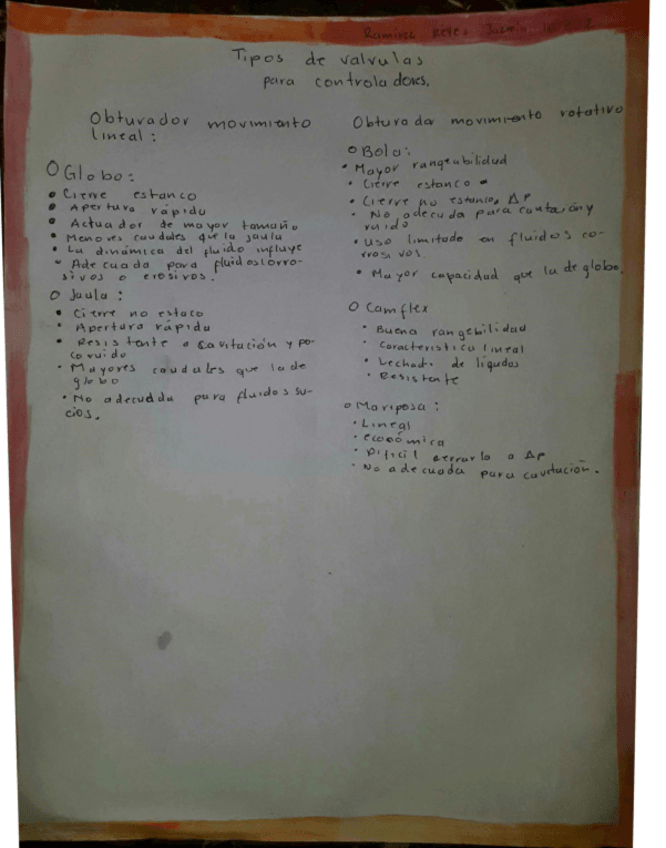 Ramirez Reyes Jazmin
Tipos de valvulas
para controladores.
Obturador movimiento
lineal:
O Globo:
• Cierre estanco
• Apertura rápida
• Actuador de mayor tamaño
• Menores caudales que la jaula
• La dinámica del fluido influye
• Adecuada para fluidos corro-
sivos o erosivos.
O Jaula:
• Cierre no estaco
• Apertura rápida
• Resistente a cavitación y po-
co ruido
• Mayores caudales que la de
globo
• No adecudda para fluidos su-
cios.
Obturador movimiento rotativo
O Bola:
• Mayor rangeabilidad
• Cierre estanco
• Cierre no estanco, ΔP
• No adecuda para cavitación y
ruido
• Uso limitado en fluidos co-
rrosivos.
• Mayor capacidad que la de globo.
O Camflex
• Buena rangebilidad
• Caracteristica lineal
• Lechada de líqudos
• Resistente
O Mariposa:
• Lineal
• económica
• Dificil cerrarla a ΔP
• No adecuada para cavitación.